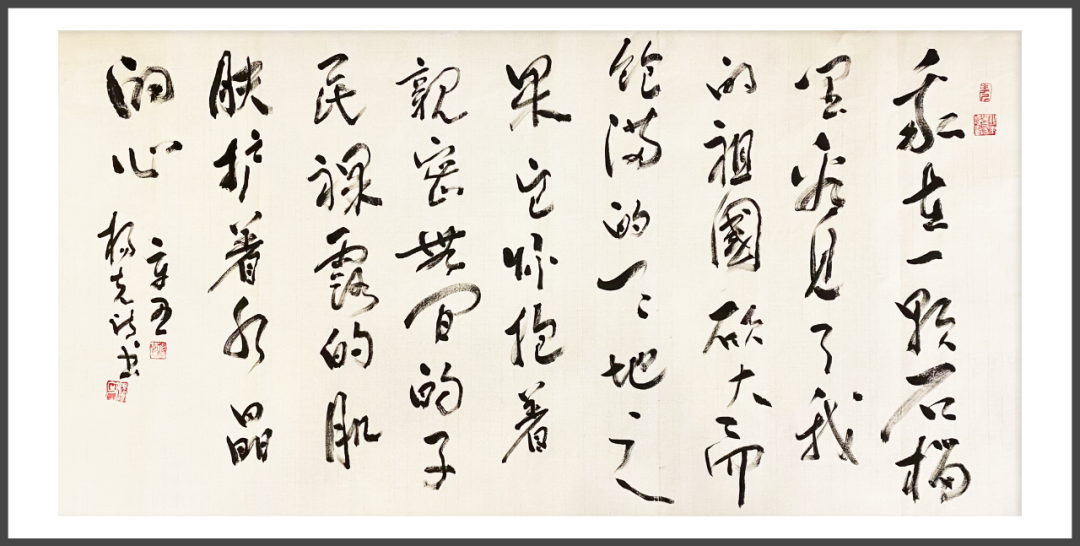 我在一颗石榴
里看见了我
的祖國硕大而
饱满的天地之
果它怀抱着
親密無间的子
民裸露的肌
肤护着水晶
的心
辛丑
杨克诗书